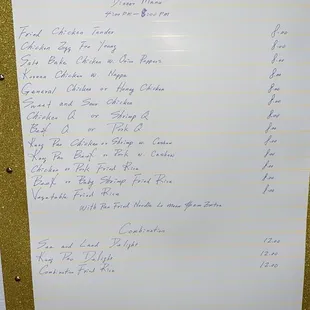 Dinner Menu
4:00 PM - 8:00 PM
Fried Chicken Tender 8.00
Chicken Egg Foo Young 8.00
Salt Bake Chicken w. Green Peppers 8.00
Korean Chicken w Nappa 8.00
General Chicken or Honey Chicken 8.00
Sweet and Sour Chicken 8.00
Chicken Q or Shrimp Q 8.00
Beef Q or Pork Q 8.00
Kung Pao Chicken or Shrimp w Cashew 8.00
Kung Pao Beef or Pork w Cashew 8.00
Chicken or Pork Fried Rice 8.00
Beef or Baby Shrimp Fried Rice 8.00
Vegetable Fried Rice 8.00
With Pan Fried Noodle Lo Mein
Combination
Sea and Land Delight 12.00
Kung Pao Delight 12.00
Combination Fried Rice 12.00